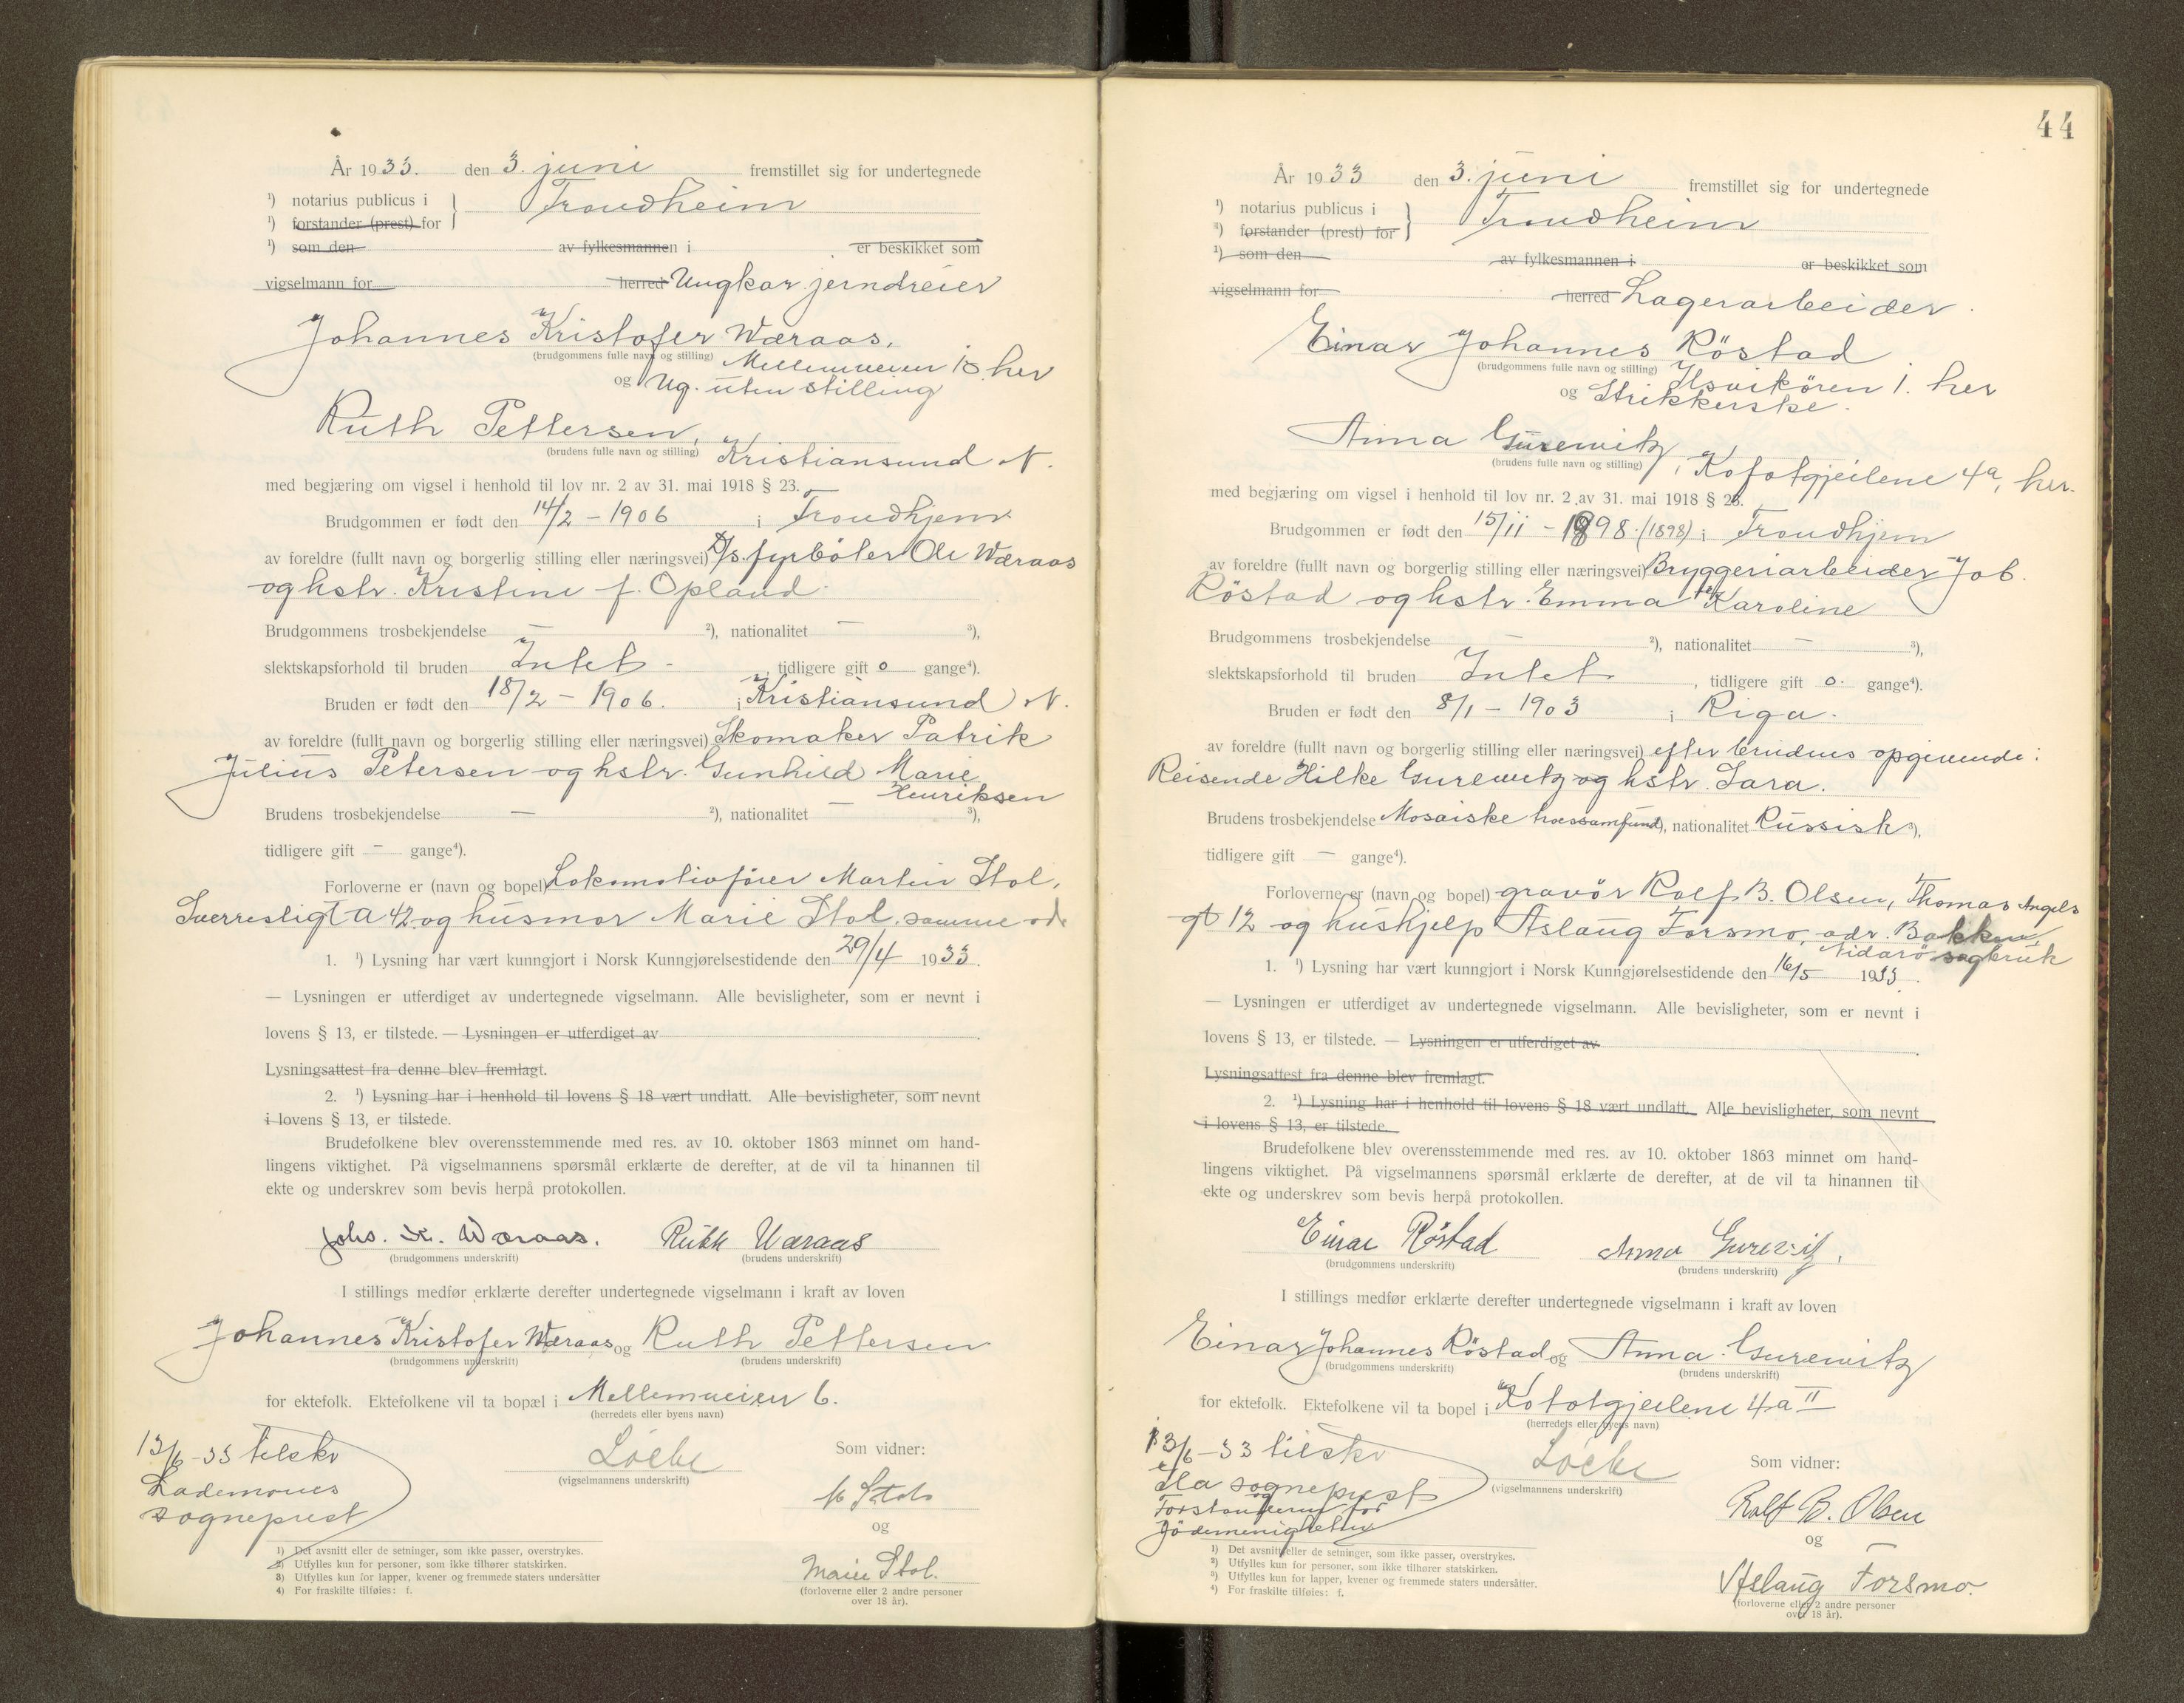 År 1933. den 3. juni fremstillet sig for undertegnede
¹) notarius publicus i
¹) forstander (prest) for
Trondheim
¹) som den av fylkesmannen i er beskikket som
vigselmann for herred Ungkar jerndreier
Johannes Kristofer Wæraas,
(brudgommens fulle navn og stilling) Mellemveien 6 her
og Ug. uten stilling
Ruth Pettersen,
(brudens fulle navn og stilling) Kristiansund N.
med begjæring om vigsel i henhold til lov nr. 2 av 31. mai 1918 § 23.
Brudgommen er født den 14/2 - 1906 i Trondhjem
av foreldre (fullt navn og borgerlig stilling eller næringsvei) fyrbøter Ole Wæraas
og hstr. Kristine f. Opland
Brudgommens trosbekjendelse — ²), nationalitet — ³),
slektskapsforhold til bruden Intet - , tidligere gift 0 gange⁴).
Bruden er født den 18/2 - 1906. i Kristiansund N.
av foreldre (fullt navn og borgerlig stilling eller næringsvei) Skomaker Patrik
Julius Petersen og hstr. Gunhild Marie
Henriksen
Brudens trosbekjendelse — ²), nationalitet — ³),
tidligere gift — gange⁴).
Forloverne er (navn og bopel) Lokomotivfører Martin Stol,
Sverresligt a 42 og husmor Marie Stol, samme
1. ¹) Lysning har vært kunngjort i Norsk Kunngjørelsestidende den 29/4 1933.
— Lysningen er utferdiget av undertegnede vigselmann. Alle bevisligheter, som er nevnt i
lovens § 13, er tilstede. — Lysningen er utferdiget av
Lysningsattest fra denne blev fremlagt.
2. ¹) Lysning har i henhold til lovens § 18 vært undlatt. Alle bevisligheter, som nevnt
i lovens § 13, er tilstede.
Brudefolkene blev overensstemmende med res. av 10. oktober 1863 minnet om hand-
lingens viktighet. På vigselmannens spørsmål erklærte de derefter, at de vil ta hinannen til
ekte og underskrev som bevis herpå protokollen.
Johs. K. Wæraas. Ruth Wæraas
(brudgommens underskrift) (brudens underskrift)
I stillings medfør erklærte derefter undertegnede vigselmann i kraft av loven
Johannes Kristofer Wæraas og Ruth Pettersen
(brudgommens underskrift) (brudens underskrift)
for ektefolk. Ektefolkene vil ta bopæl i Mellemveien 6.
(herredets eller byens navn)
13/6-33 tilskr
Lademoens
sogneprest
Løcke
(vigselmannens underskrift)
Som vidner:
M Stol
og
Marie Stol.
(forloverne eller 2 andre personer
over 18 år).
1) Det avsnitt eller de setninger, som ikke passer, overstrykes.
2) Utfylles kun for personer, som ikke tilhører statskirken.
3) Utfylles kun for lapper, kvener og fremmede staters undersåtter
4) For fraskilte tilføies: f.
44
År 1933 den 3. juni fremstillet sig for undertegnede
¹) notarius publicus i
¹) forstander (prest) for
Trondheim
¹) som den av fylkesmannen i er beskikket som
vigselmann for herred Lagerarbeider
Einar Johannes Röstad
(brudgommens fulle navn og stilling) Ilsvikören 1. her
og Strikkerske.
Anna Gurewitz
(brudens fulle navn og stilling), Kofotgjeilene 4a, her.
med begjæring om vigsel i henhold til lov nr. 2 av 31. mai 1918 § 23.
Brudgommen er født den 15/11 - 1898. (1898) i Trondhjem
av foreldre (fullt navn og borgerlig stilling eller næringsvei) Bryggeriarbeider Joh.
Röstad og hstr. Emma Karoline
Brudgommens trosbekjendelse — ²), nationalitet — ³),
slektskapsforhold til bruden Intet , tidligere gift 0. gange⁴).
Bruden er født den 8/1 - 1903 i Riga.
av foreldre (fullt navn og borgerlig stilling eller næringsvei) efter brudens opgivende:
Reisende Hilke Gurewitz og hstr. Sara.
Brudens trosbekjendelse Mosaiske trossamfund), nationalitet Russisk ³),
tidligere gift — gange⁴).
Forloverne er (navn og bopel) gravör Rolf B. Olsen, Thomas Angels
gt 12 og hushjelp Aslaug Forsmo, adr. Bakken,
Nidarö sagbruk
1. ¹) Lysning har vært kunngjort i Norsk Kunngjørelsestidende den 16/5 1933.
— Lysningen er utferdiget av undertegnede vigselmann. Alle bevisligheter, som er nevnt i
lovens § 13, er tilstede. — Lysningen er utferdiget av
Lysningsattest fra denne blev fremlagt.
2. ¹) Lysning har i henhold til lovens § 18 vært undlatt. Alle bevisligheter, som nevnt
i lovens § 13, er tilstede.
Brudefolkene blev overensstemmende med res. av 10. oktober 1863 minnet om hand-
lingens viktighet. På vigselmannens spørsmål erklærte de derefter, at de vil ta hinannen til
ekte og underskrev som bevis herpå protokollen.
Einar Röstad Anna Gurewitz.
(brudgommens underskrift) (brudens underskrift)
I stillings medfør erklærte derefter undertegnede vigselmann i kraft av loven
Einar Johannes Röstad og Anna Gurewitz
(brudgommens underskrift) (brudens underskrift)
for ektefolk. Ektefolkene vil ta bopel i Kofotgjeilene 4a II
(herredets eller byens navn)
13/6-33 tilskr
Ila sogneprest
og
Forstanderen for
Jödemenigheten
Løcke
(vigselmannens underskrift)
Som vidner:
Rolf B. Olsen
og
Aslaug Forsmo.
(forloverne eller 2 andre personer
over 18 år).
1) Det avsnitt eller de setninger, som ikke passer, overstrykes.
2) Utfylles kun for personer, som ikke tilhører statskirken.
3) Utfylles kun for lapper, kvener og fremmede staters undersåtter.
4) For fraskilte tilføies: f.